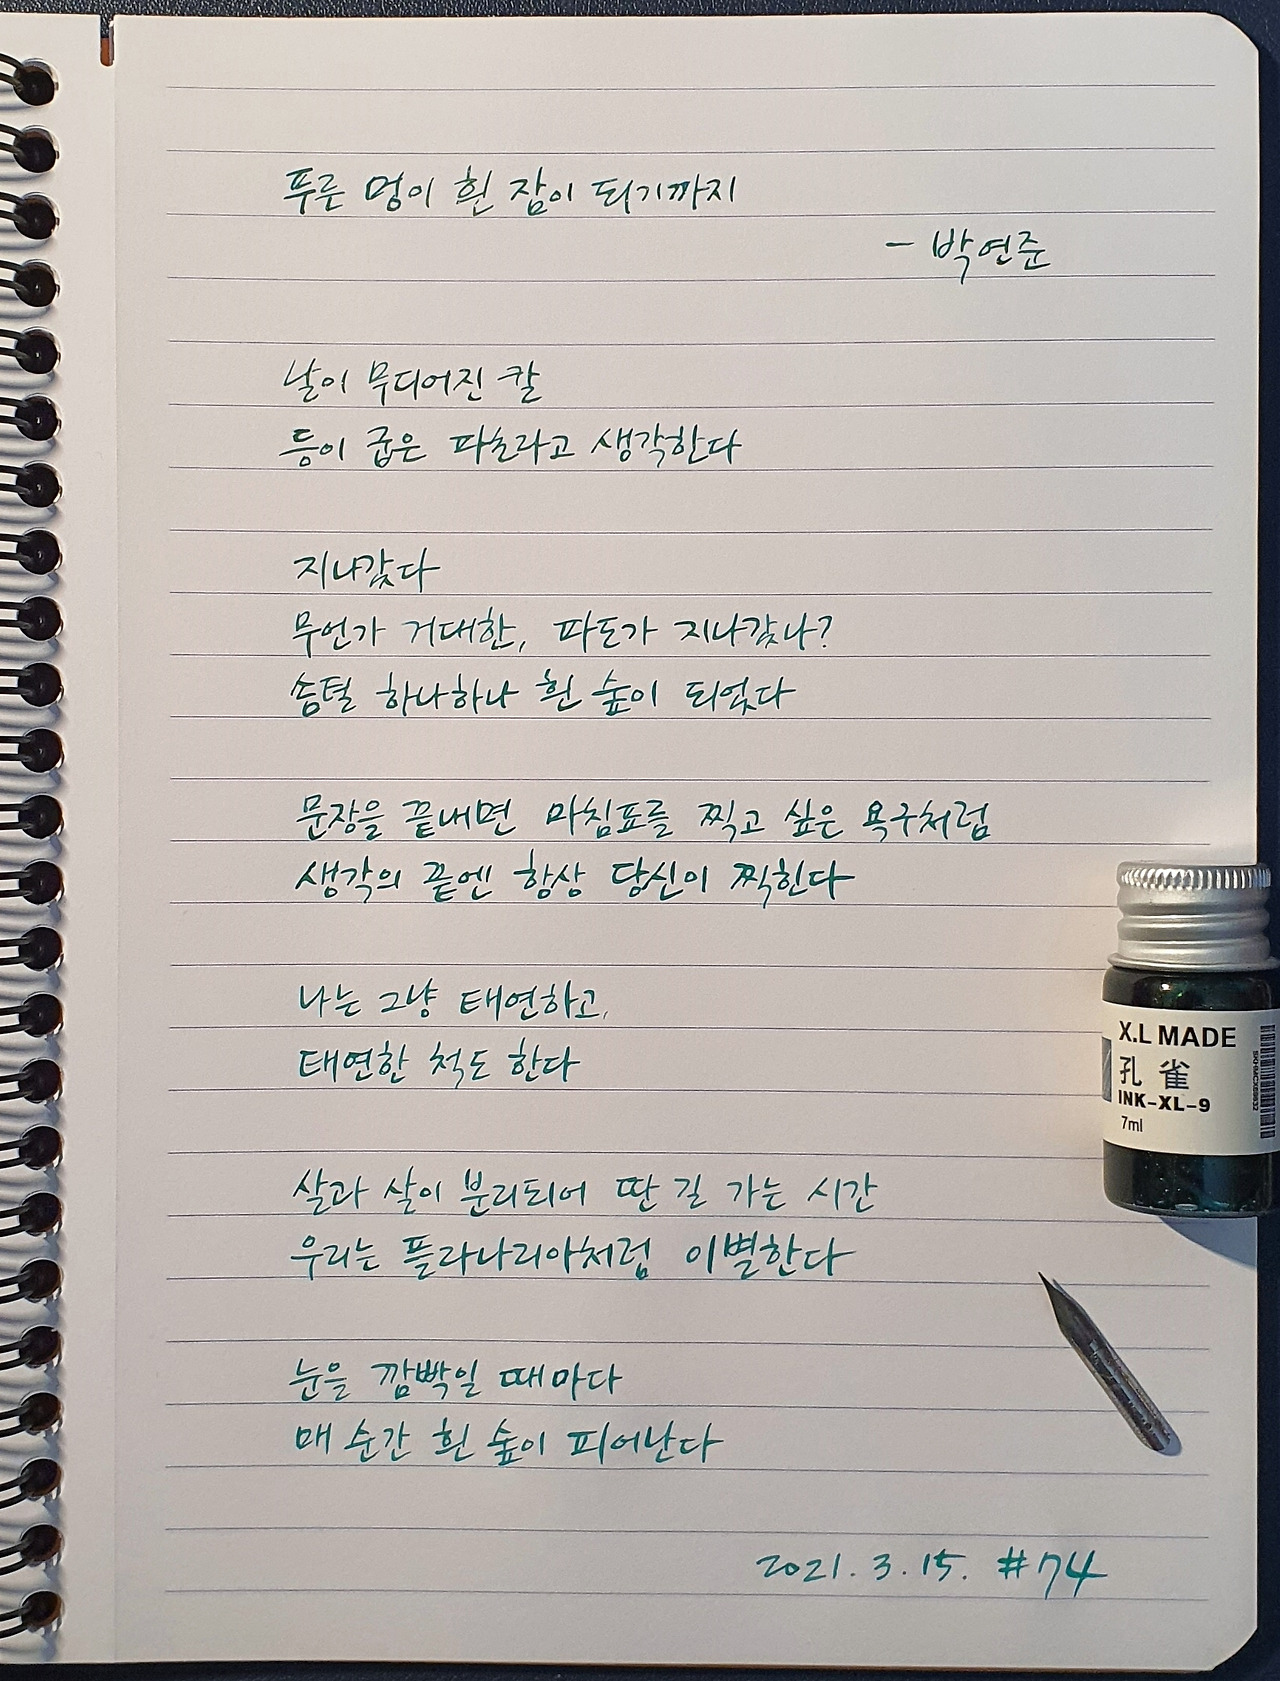 푸른 멍이 흰 잠이 되기까지
- 박연준
날이 무디어진 칼
등이 굽은 파초라고 생각한다
지나갔다
무언가 거대한, 파도가 지나갔나?
솜털 하나하나 흰 숲이 되었다
문장을 끝내면 마침표를 찍고 싶은 욕구처럼
생각의 끝엔 항상 당신이 찍힌다
나는 그냥 태연하고,
태연한 척도 한다
살과 살이 분리되어 딴 길 가는 시간
우리는 플라나리아처럼 이별한다
눈을 깜빡일 때마다
매 순간 흰 숲이 피어난다
2021. 3. 15. #74
X.L MADE
孔雀
INK-XL-9
7ml